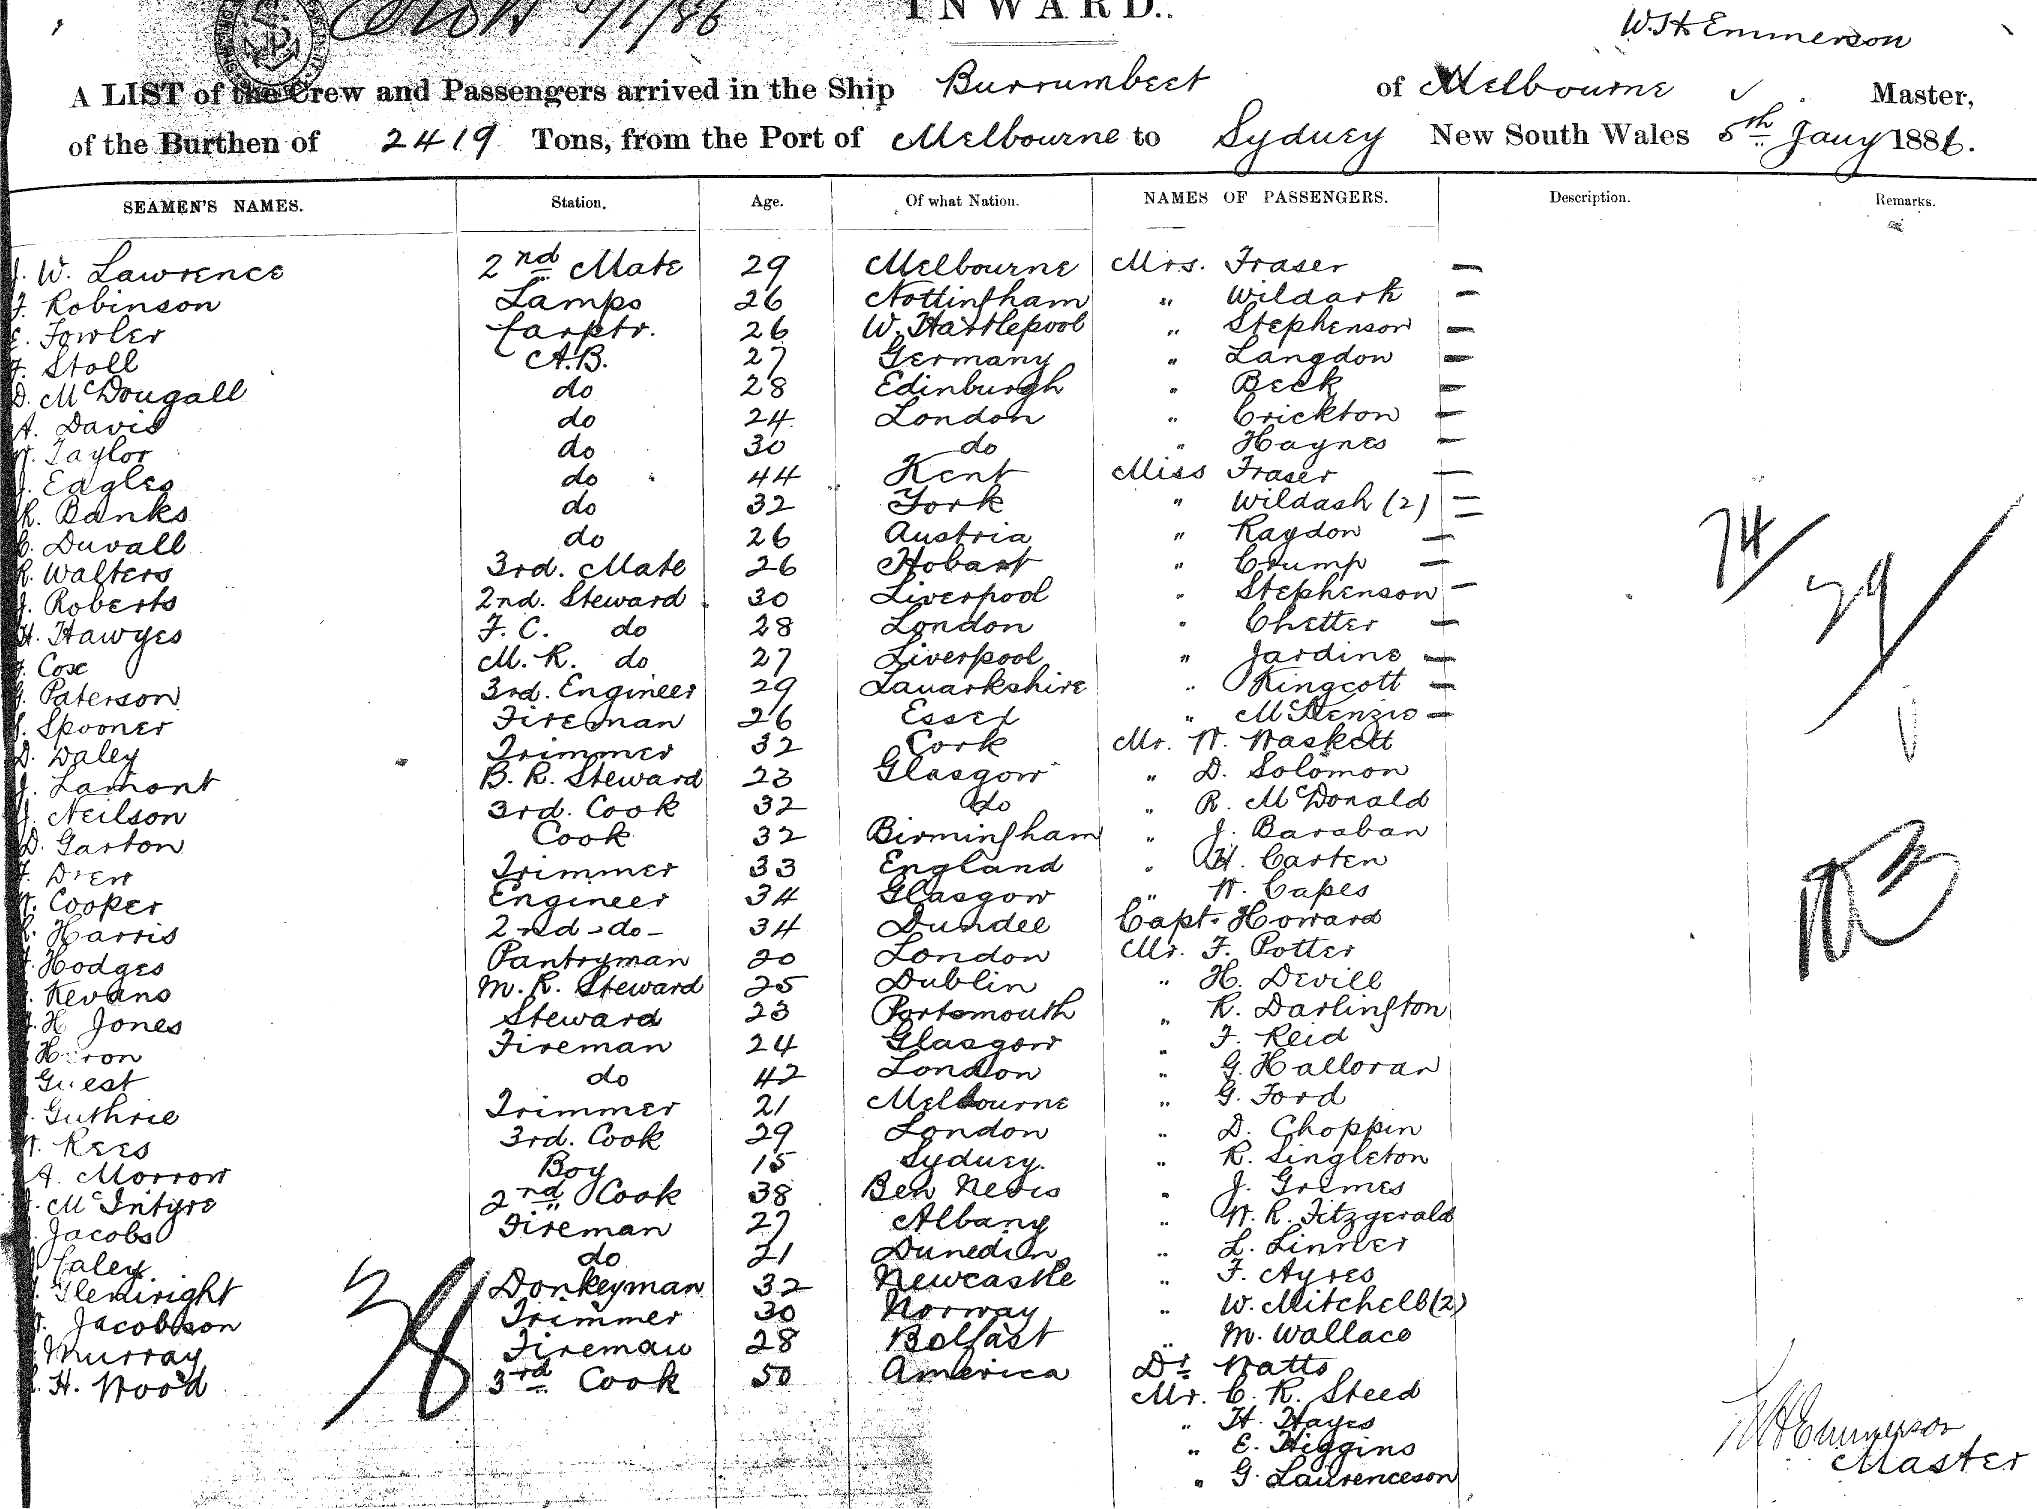 INWARD.
W. H. Emmerson
A LIST of the Crew and Passengers arrived in the Ship Burrumbeet of Melbourne Master,
of the Burthen of 2419 Tons, from the Port of Melbourne to Sydney New South Wales 5th Jany 1886.
SEAMEN'S NAMES. Station. Age. Of what Nation. NAMES OF PASSENGERS. Description. Remarks.
J. W. Lawrence 2nd Mate 29 Melbourne Mrs. Fraser —
F. Robinson Lamps 26 Nottingham " Wildark —
E. Fowler Carptr. 26 W. Hartlepool " Stephenson —
F. Stoll A.B. 27 Germany " Langdon —
D. McDougall do 28 Edinburgh " Beck —
A. Davis do 24 London " Crickton —
W. Taylor do 30 do " Haynes —
J. Eagles do 44 Kent Miss Fraser —
R. Banks do 32 York " Wildash (2) =
C. Duvall do 26 Austria " Raydon —
R. Walters 3rd. Mate 26 Hobart " Crump —
J. Roberts 2nd. Steward 30 Liverpool " Stephenson —
H. Hawyes F. C. do 28 London " Chetter —
F. Cox M. R. do 27 Liverpool " Jardine —
G. Paterson 3rd. Engineer 29 Lanarkshire " Kingcott —
Spooner Fireman 26 Essex " McKenzie —
D. Daley Trimmer 32 Cork Mr. W. Waskett
J. Lamont B. R. Steward 23 Glasgow " D. Solomon
J. Neilson 3rd. Cook 32 do " R. McDonald
D. Garton Cook 32 Birmingham " J. Baraban
F. Drew Trimmer 33 England " H. Carten
W. Cooper Engineer 34 Glasgow " W. Capes
Harris 2nd - do - 34 Dundee Capt. Howard
Hodges Pantryman 20 London Mr. F. Potter
Kevans M. R. Steward 25 Dublin " H. Devill
H Jones Steward 23 Portsmouth " R. Darlington
Heron Fireman 24 Glasgow " F. Reid
Guest do 42 London " G. Halloran
Guthrie Trimmer 21 Melbourne " G. Ford
W. Rees 3rd. Cook 29 London " D. Choppin
A. Morrow Boy 15 Sydney. " R. Singleton
McIntyre 2nd Cook 38 Ben Nevis " J. Grimes
Jacobs Fireman 27 Albany " W. R. Fitzgerald
Caley do 21 Dunedin " L. Linner
Glenwright Donkeyman 32 Newcastle " F. Ayres
Jacobson Trimmer 30 Norway " W. Mitchell (2)
Murray Fireman 28 Belfast " M. Wallace
H. Wood 3rd Cook 50 America Dr. Watts
Mr. C. R. Steed
" H. Hayes
" E. Higgins
" G. Laurenceson
74
39
38
W H Emmerson
Master